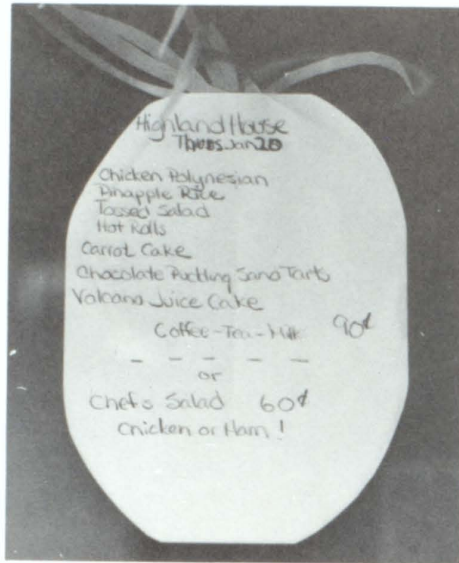 Highland House
Thurs. Jan 20
Chicken Polynesian
Pinapple Rice
Tossed Salad
Hot Rolls
Carrot Cake
Chocolate Pudding Sand Tarts
Volcano Juice Cake
Coffee-Tea-Milk 90¢
- - - - -
or
Chefs Salad 60¢
Chicken or Ham!